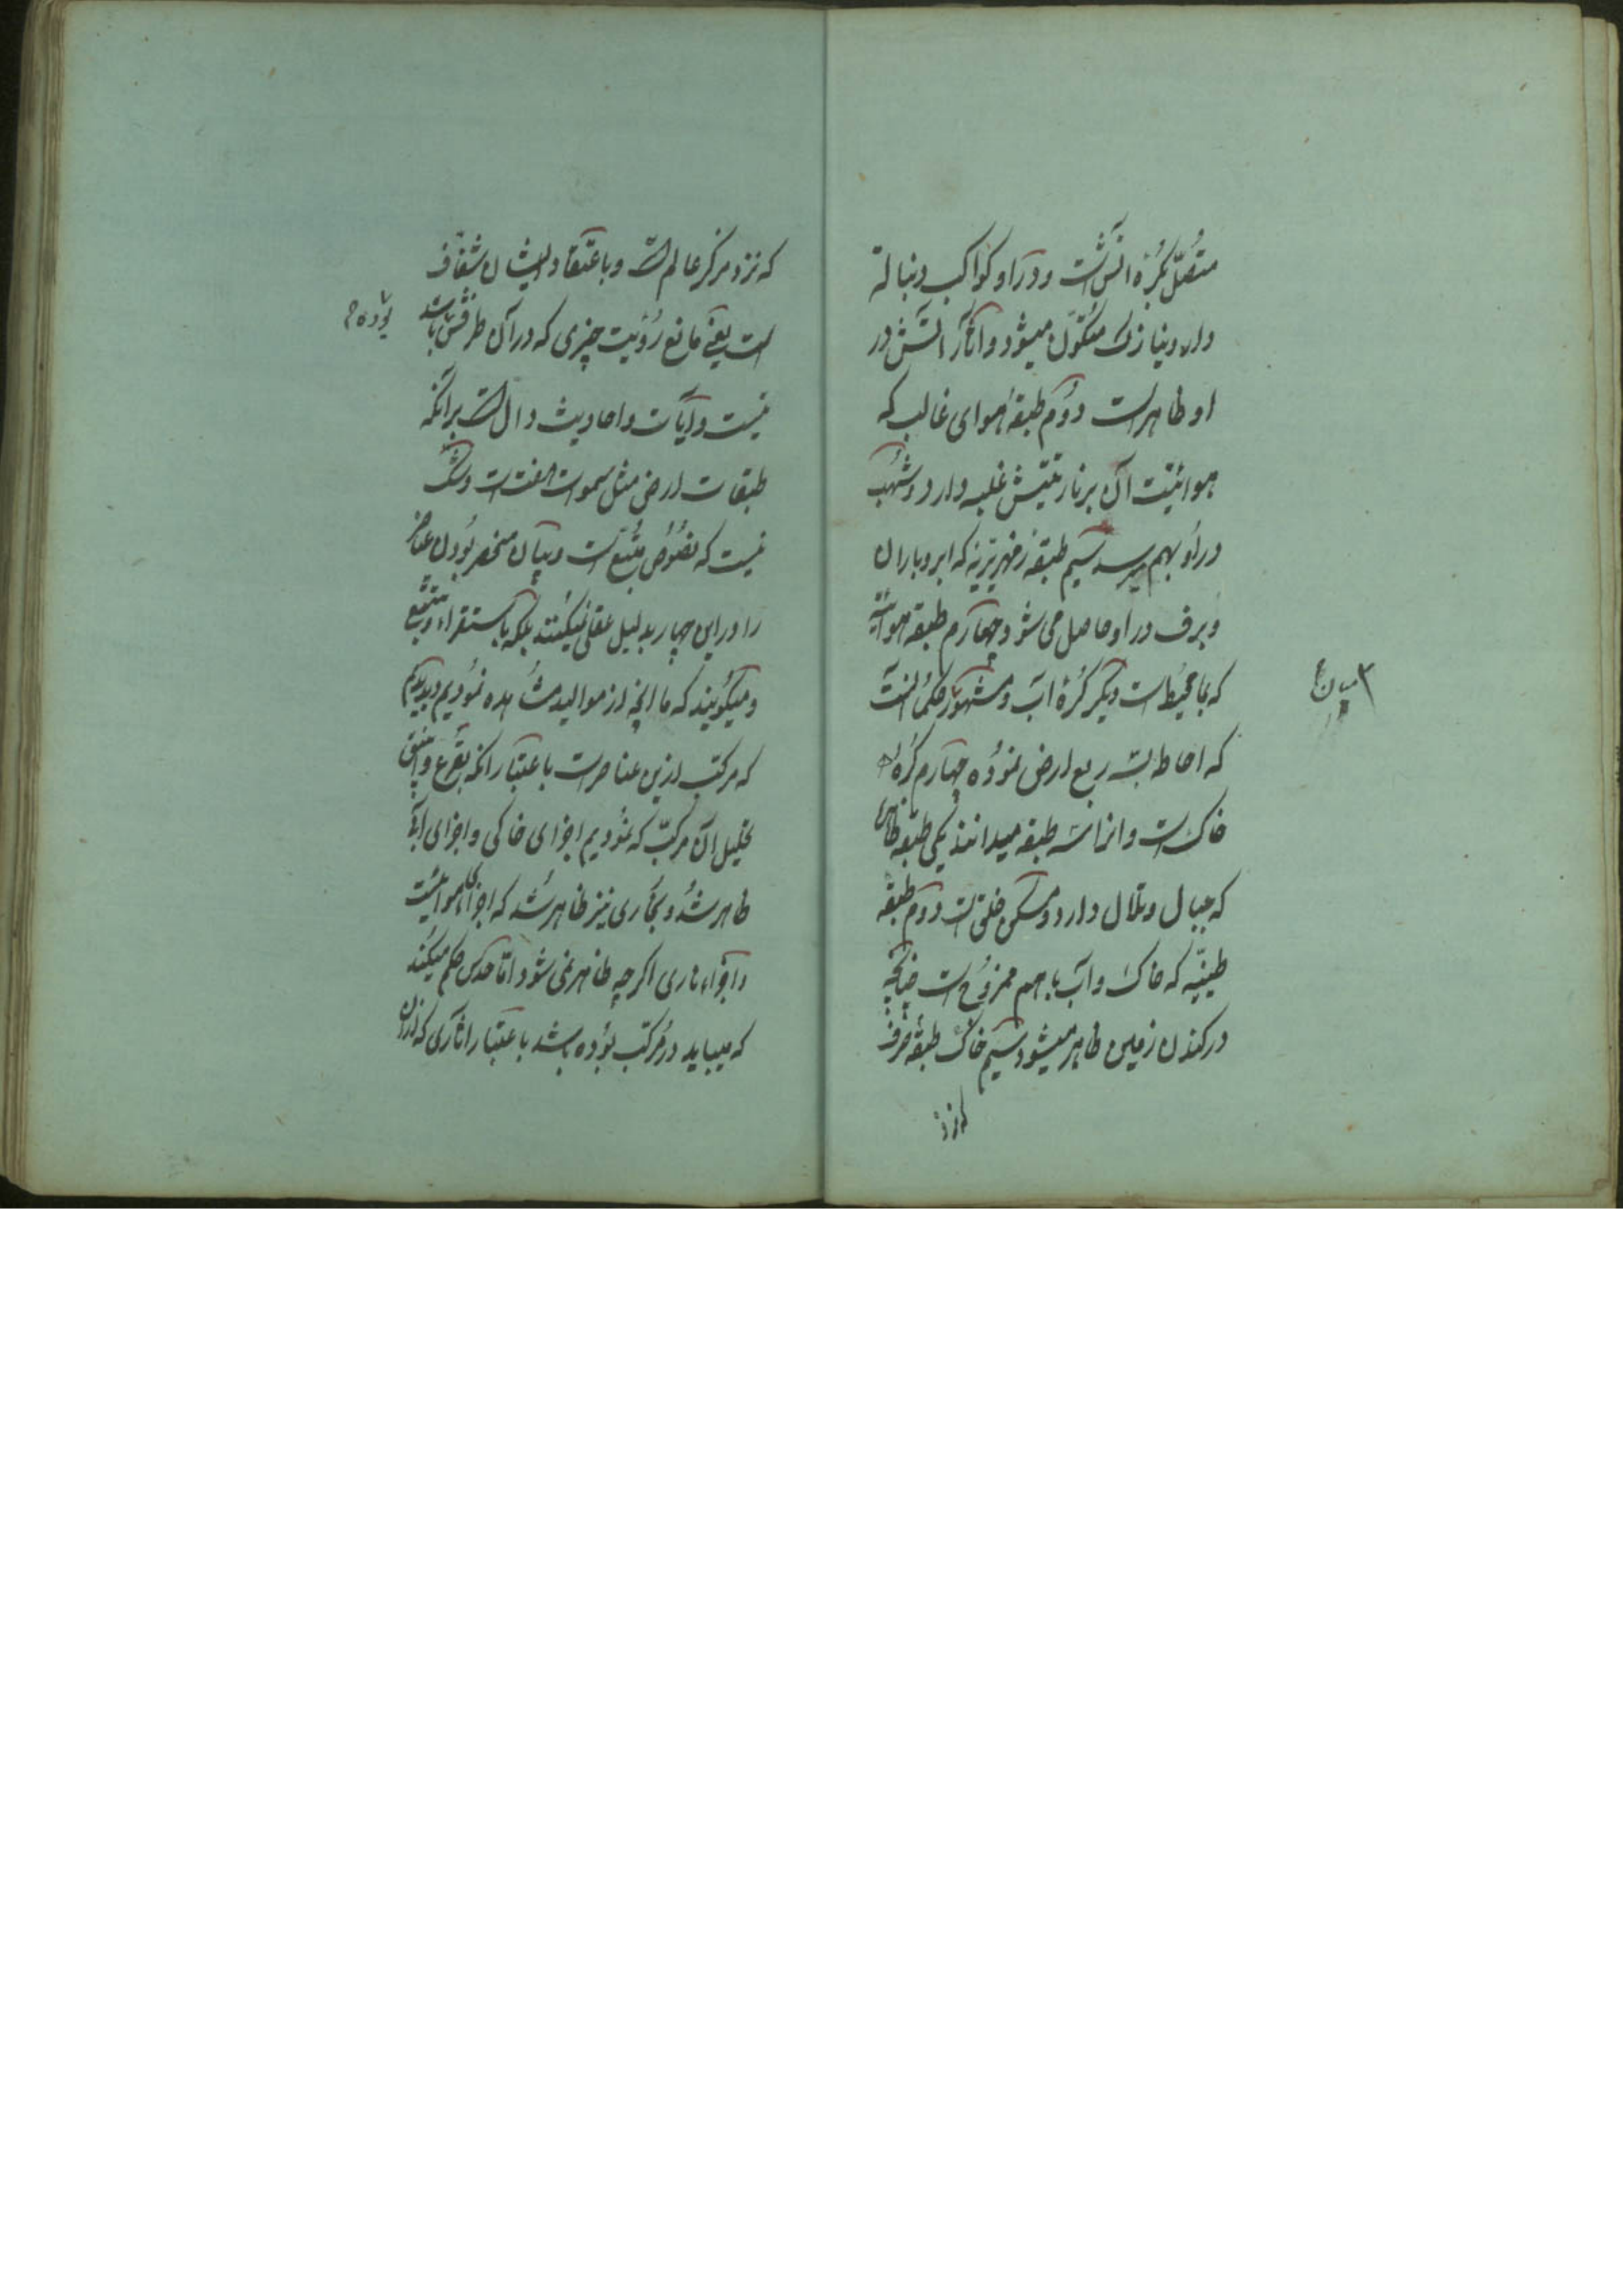 متصل بکرۀ آتش است و در او کواکب دنبالۀ
دار و نیازک متکوّن میشود و آثار آتش در
او ظاهر است دوّم طبقۀ هوای غالب که
هوائیّت آن بر ناریّتش غلبه دارد و شهب
در او بهم میرسد سیم طبقۀ زمهریریّه که ابر و باران
و برف در او حاصل می شود چهارم طبقۀ هوائیّه
که بما محیط است دیگر کرۀ آب و مشهور حکما آنست
که احاطه بسه ربع ارض نموده چهارم کرۀ
خاک است و انرا سه طبقه میدانند یکی طبقه ظاهر
که جبال و تلال دارد و مسکن خلق است دوم طبقه
طینیّه که خاک و آب با هم ممزوج است چنانچه
در کندن زمین ظاهر میشود سیم خاک طبقۀ صرف
که نزد
که نزد مرکز عالم است و باعتقاد ایشان شفّاف
است یعنی مانع رؤیت چیزی که در آن طرفش باشد
نیست و آیات و احادیث دال است بر آنکه
طبقات ارض مثل سموات هفت است و شک
نیست که نصوص متّبع است و بیان منحصر بودن عناصر
را در این چهار بدلیل عقلی نمیکنند بلکه باستقراء و تتبّع
و میگویند که ما انچه از موالید مشاهده نمودیم دیدیم
که مرکّب ازین عناصر است باعتبار انکه بقرع و انبیق
تحلیل آن مرکّب که نمودیم اجزای خاکی و اجزای آبی
ظاهر شد و بخاری نیز ظاهر شد که اجزای هوائیست
و اجزاء ناری اگر چه ظاهر نمی شود امّا حدس حکم میکند
که میباید در مرکّب بوده باشد باعتبار اثاری که از آن
بوده